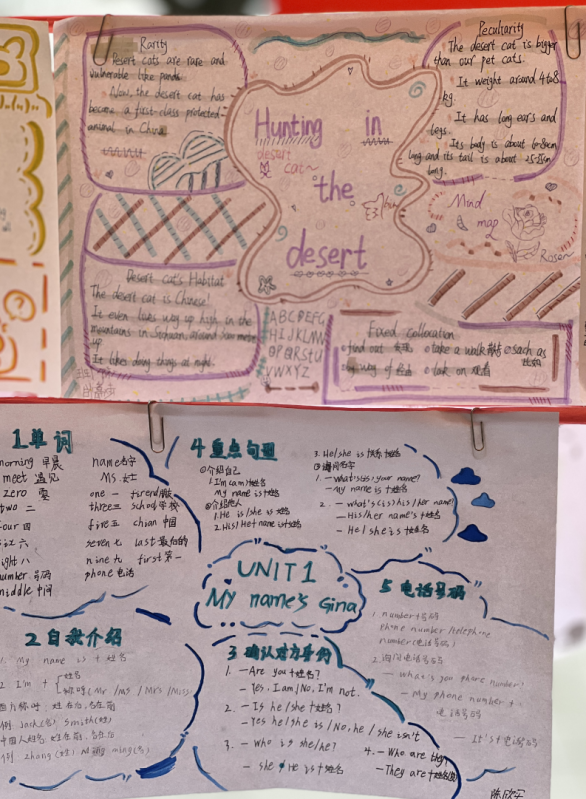 Rarity
Desert cats are rare and
vulnerable like panda.
Now, the desert cat has
become a first-class protected
animal in China
Hunting in
desert
cat~
the
desert
Peculiarity
The desert cat is bigger
than our pet cats.
It weight around 4to8
kg.
It has long ears and
legs.
Its body is about
long and its tail is about
long.
Mind
map
Rosen
Desert cat's Habitat
The desert cat is Chinese!
It even lakes way up high in the
mountains in Sichuan, around
up
It likes doing things at night.
ABCDEFG
HIJKLMN
OPQRSTU
VWXYZ
Fixed collocation
find out
take a walk
such as
way of
take on
1.单词
morning 早晨
meet 遇见
zero 零
two 二
four 四
six 六
eight 八
number 号码
middle 中间
name名字
MS.女士
one 一
three 三
five 五
seven 七
nine 九
phone 电话
firend朋友
school学校
chian 中国
last 最后的
first第一
4重点句型
①介绍自己
1.I'm am+姓名
My name is+姓名
②介绍他人
1.He is/she is+姓名
2.His/Her name is+姓名
3.He/she is
③询问名字
1. —What's(is) your name?
—My name is+姓名
2. —what's(is) his/her name?
—His/her name's+姓名
—He/she is+姓名
UNIT1
My name's Gina
5 电话号码
1. number+号码
Phone number/telephone
number(电话号码)
2.询问电话号码
—What's you phone number?
—My phone number+
电话号码
—It's+电话号码
2自我介绍
1. My name is+姓名
2. I'm+
姓名
称呼(Mr/Ms/Mrs/Miss)
例 Jack(名) Smith(姓)
中国人姓名 姓在前,名在后
例 zhang(姓) ming(名)
3 确认对方身份
1. —Are you+姓名?
—Yes, I am/No, I'm not.
2. —Is he/she+姓名?
—Yes he/she is/No, he/she isn't
3. —Who is she/he?
—she/He is+姓名
4. —Who are they?
—They are+姓名
陈欣